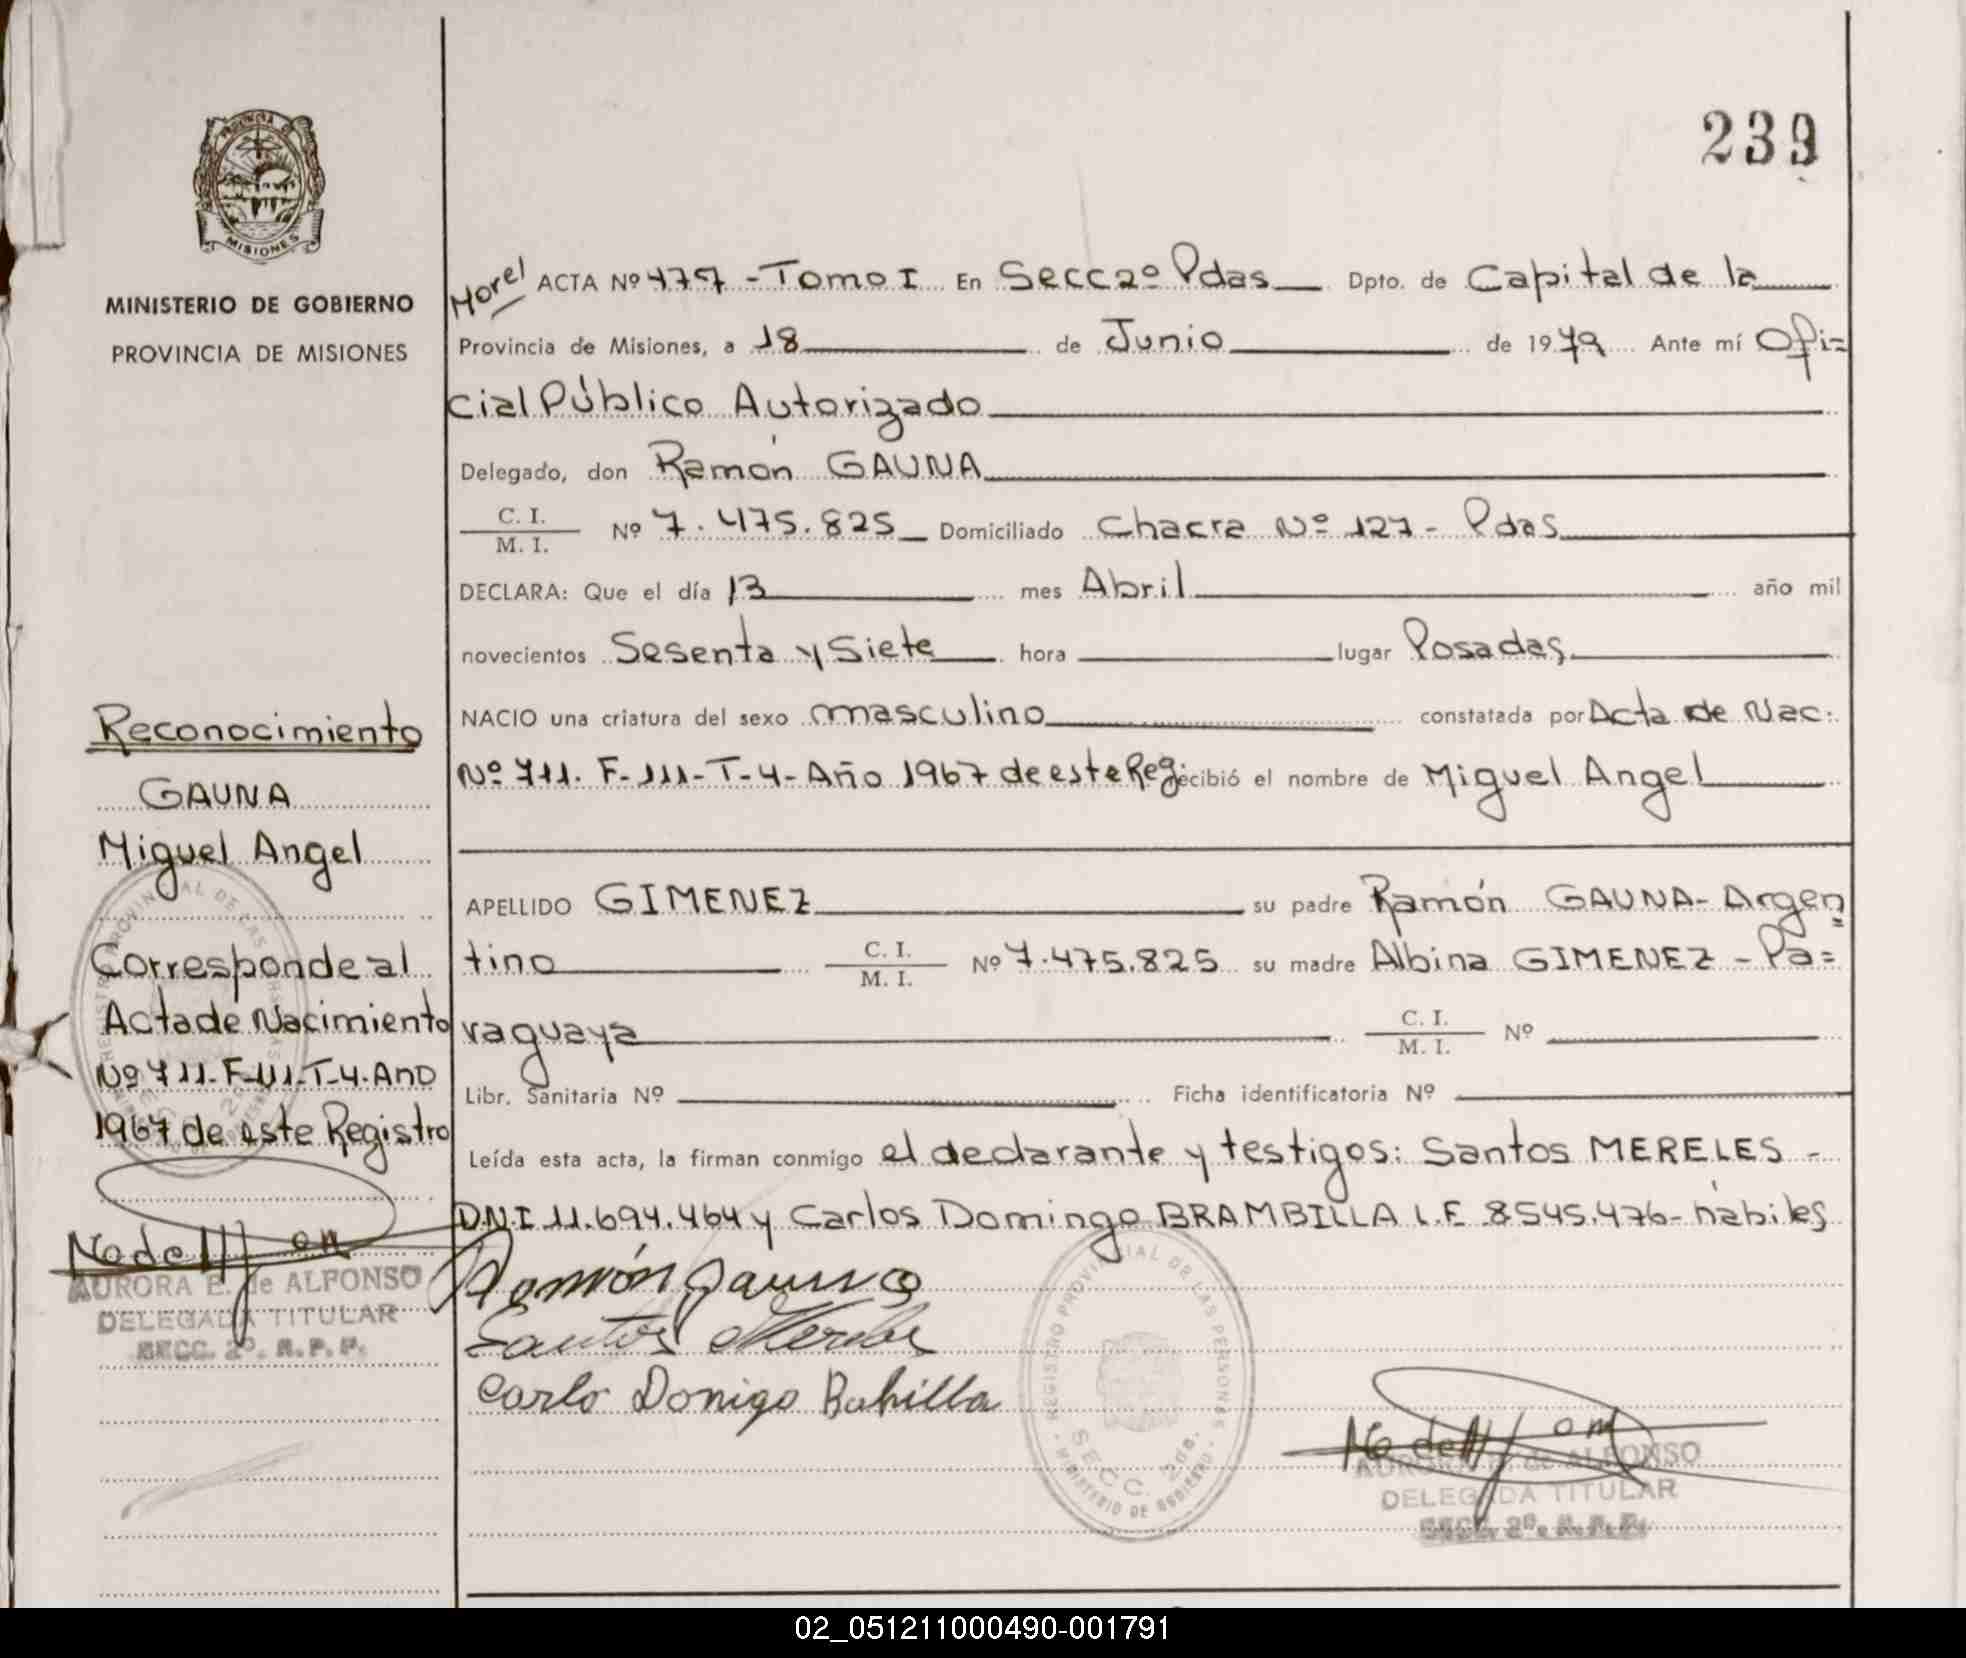 239
PROVINCIA DE
MISIONES
MINISTERIO DE GOBIERNO
PROVINCIA DE MISIONES
Morel ACTA Nº 4757 - Tomo I En Secc 2º Pdas Dpto. de Capital de la
Provincia de Misiones, a 18 de Junio de 1979 Ante mí Ofi=
cial Público Autorizado
Delegado, don Ramón GAUNA
C. I.
M. I. Nº 7.475.825 Domiciliado Chacra Nº 127 - Pdas
DECLARA: Que el día 13 mes Abril año mil
novecientos Sesenta y Siete hora lugar Posadas
NACIO una criatura del sexo masculino constatada por Acta de Nac.
Nº 711. F-111-T-4-Año 1967 de este Reg. ecibió el nombre de Miguel Angel
APELLIDO GIMENEZ su padre Ramón GAUNA - Argen=
tino C. I.
M. I. Nº 7.475.825 su madre Albina GIMENEZ - Pa=
raguaya C. I.
M. I. Nº
Libr. Sanitaria Nº Ficha identificatoria Nº
Leída esta acta, la firman conmigo el declarante y testigos: Santos MERELES -
D.N.I 11.694.464 y Carlos Domingo BRAMBILLA L.E 8545.476 - hábiles
Ramón Gauna
Santos Mereles
Carlo Donigo Bahilla
REGISTRO PROVINCIAL DE LAS PERSONAS
SECC. 2da.
MINISTERIO DE GOBIERNO
AURORA E. de ALFONSO
DELEGADA TITULAR
SECC. 2º. R.P.P.
Reconocimiento
GAUNA
Miguel Angel
Corresponde al
Acta de Nacimiento
Nº 711-F-111-T-4-Año
1967 de este Registro
REGISTRO PROVINCIAL DE LAS PERSONAS
AURORA E. de ALFONSO
DELEGADA TITULAR
SECC. 2º. R.P.P.
02_051211000490-001791